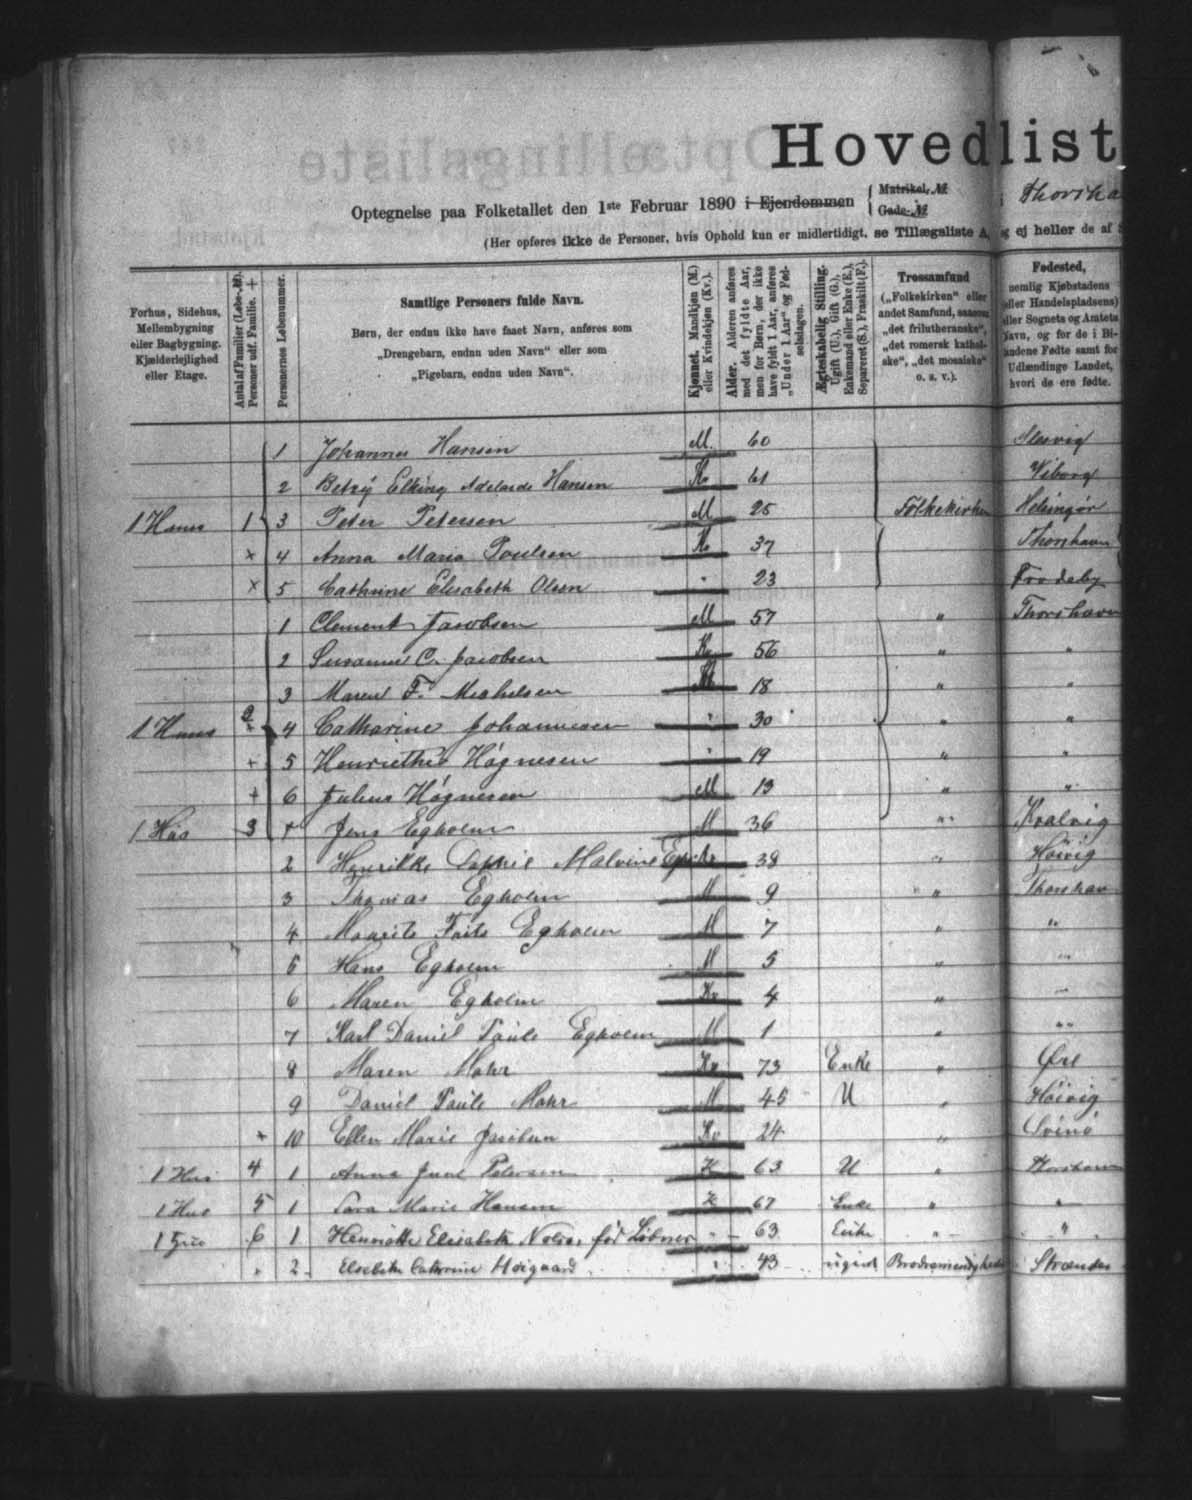 Hovedlist
Optegnelse paa Folketallet den 1ste Februar 1890 i Ejendommen { Matrikel-№ Gade-№ i Thorsha
(Her opføres ikke de Personer, hvis Ophold kun er midlertidigt, se Tillægsliste A, og ej heller de af
Forhus, Sidehus, Mellembygning eller Bagbygning. Kjælderlejlighed eller Etage.
Antal af Familier (Løbe-№). Personer udf. Familie. +
Personernes Løbenummer.
Samtlige Personers fulde Navn.
Børn, der endnu ikke have faaet Navn, anføres som
„Drengebarn, endnu uden Navn" eller som
„Pigebarn, endnu uden Navn".
Kjønnet. Mandkjøn (M.) eller Kvindekjøn (Kv.).
Alder. Alderen anføres med det fyldte Aar, men for Børn, der ikke have fyldt 1 Aar, anføres „Under 1 Aar" og Fødselsdagen.
Ægteskabelig Stilling. Ugift (U.), Gift (G.), Enkemand eller Enke (E.), Separeret (S.), Fraskilt (F.).
Trossamfund („Folkekirken" eller andet Samfund, saasom „det frilutheranske", „det romersk katholske", „det mosaiske" o. s. v.).
Fødested, nemlig Kjøbstadens (eller Handelspladsens) eller Sognets og Amtets Navn, og for de i Bilandene Fødte samt for Udlændinge Landet, hvori de ere fødte.
1 Johannes Hansen M. 60 Slesvig
2 Betzÿ Elking Adelaide Hansen Kv 61 Viborg
1 Huus 1 3 Peter Petersen M 25 Folkekirken Helsingør
x 4 Anna Maria Poulsen Kv 37 Thorshavn
x 5 Cathrine Elisabeth Olsen " 23 Frodeby
1 Clement Jacobsen M 57 " Thorshavn
2 Susanne C. Jacobsen Kv 56 " "
3 Maren F. Michelsen 18 " "
1 Huus 2 + 4 Catharine Johannesen " 30 " "
+ 5 Henriette Høgnesen " 19 " "
+ 6 Julius Høgnesen M 13 " "
1 Hus 3 1 Jens Egholm M 36 " Kvalvig
2 Henrikke Sophie Malvine Egh Kv 38 " Høivig
3 Thomas Egholm M 9 " Thorshavn
4 Maurits Frits Egholm M 7 " "
5 Hans Egholm M 5 " "
6 Maren Egholm Kv 4 " "
7 Karl Daniel Pauli Egholm M 1 " "
8 Maren Mohr Kv 73 Enke " Øre
9 Daniel Pauli Mohr M 45 U " Høivig
+ 10 Ellen Marie Jacobsen Kv 24 " Svinø
1 Hus 4 1 Anna June Petersen K 63 U " Thorshavn
1 Hus 5 1 Sara Marie Hansen K 67 Enke " "
1 Hus 6 1 Henriette Elisabeth Nolsøe fød Løbner " 63 Enke " "
" 2 Elsebeth Catrine Høigaard " 43 ugivt Brodremenigheden Strænder